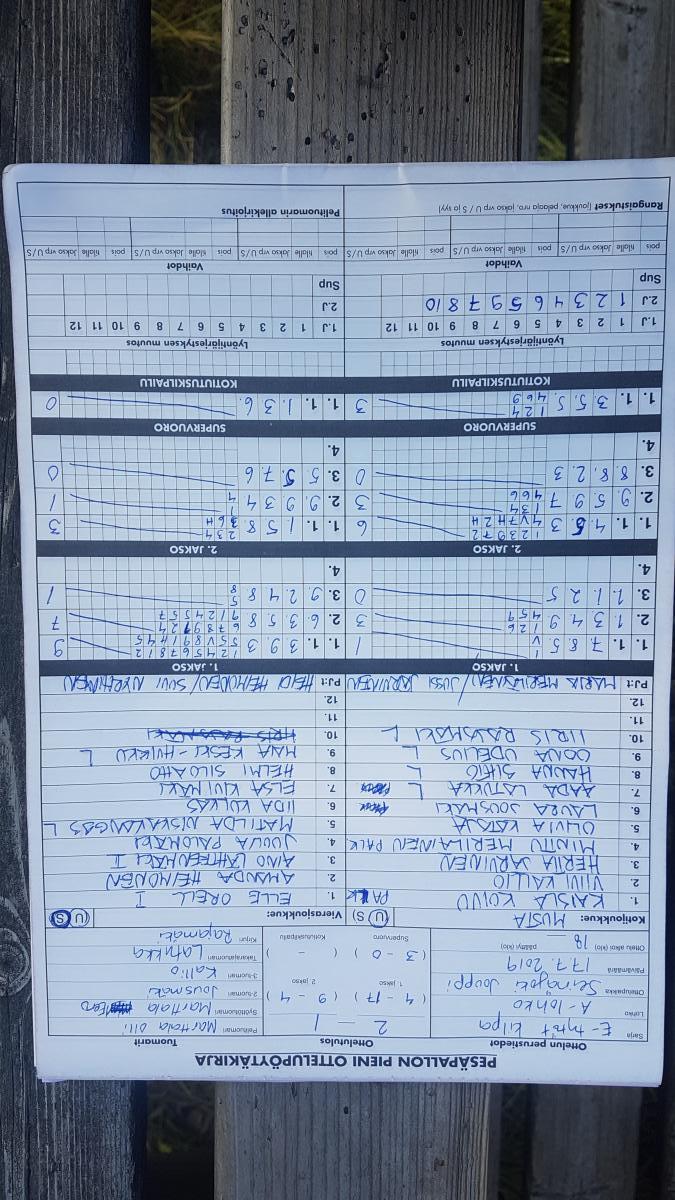 PESÄPALLON PIENI OTTELUPÖYTÄKIRJA
Ottelun perustiedot
Sarja E-tytöt kilpa
Lohko A-lohko
Ottelupaikka Seinäjoki Jouppi
Päivämäärä 17.7.2019
Ottelu alkoi (klo) 18 päättyi (klo)
Ottelutulos
2 — 1
1. jakso (4 - 17) 2. jakso (9 - 4)
Supervuoro (3 - 0) Kotiutuskilpailu ( - )
Tuomarit
Pelituomari Marttala Olli
Syöttötuomari Marttala
2-tuomari Jousmäki
3-tuomari Kallio
Takarajatuomari Latukka
Kirjuri Rajamäki
Kotijoukkue: MUSTA (U/S)
1. KAISLA KOIVU
2. VIIVI KALLIO
3. HERTTA JÄRVINEN
4. MINTTU MERILÄINEN PALK
5. OLIVIA KATAJA
6. LAURA JOUSMÄKI
7. AADA LATUKKA L
8. HANNA L
9. OONA UDELIUS L
10. IIRIS RAJAMÄKI L
11.
12.
PJ:t MARIA MERILÄINEN / JUSSI JÄRVINEN
Vierasjoukkue: (U/S)
1. ELLE ORELL I
2. AMANDA HEIMONEN
3. AINO LÄHTEENMÄKI I
4. JUULIA PALOMÄKI
5. MATILDA NISKAKANGAS L
6. IIDA KULKAS
7. ELSA KIVIMÄKI
8. HELMI SILOAHO
9. MAIJA KESKI-HVIKKU L
10.
11.
12.
PJ:t HEIDI HEIMONEN / SUVI NYRHINEN
1. JAKSO
1. 1. 7. 8. 5 1 V 1
2. 1. 3 4 9 126 459 3
3. 1. 1. 2 5 0
4.
1. JAKSO
1. 1. 3. 9. 3 9
2. 6. 3. 5. 8 7
3. 9. 2. 4 8 5 8 1
4.
2. JAKSO
1. 1. 4. 5. 3 6
2. 9. 5. 9 7 134 466 3
3. 8. 8. 2. 3 0
4.
2. JAKSO
1. 1. 1. 5 8 234 36H 3
2. 9. 9. 3 4 1 4 1
3. 5. 5. 7. 6 0
4.
SUPERVUORO
1. 1. 3. 5. 5 124 469 3
SUPERVUORO
1. 1. 1. 3 6. 0
KOTIUTUSKILPAILU
KOTIUTUSKILPAILU
Lyöntijärjestyksen muutos
1.J 1 2 3 4 5 6 7 8 9 10 11 12
2.J 1 2 3 4 6 5 9 7 8 10
Sup
Lyöntijärjestyksen muutos
1.J 1 2 3 4 5 6 7 8 9 10 11 12
2.J
Sup
Vaihdot
pois tilalle Jakso vrp U/S pois tilalle Jakso vrp U/S pois tilalle Jakso vrp U/S
Vaihdot
pois tilalle Jakso vrp U/S pois tilalle Jakso vrp U/S pois tilalle Jakso vrp U/S
Rangaistukset (joukkue, nro, pelaaja, jakso vrp U / S ja syy)
Pelituomarin allekirjoitus